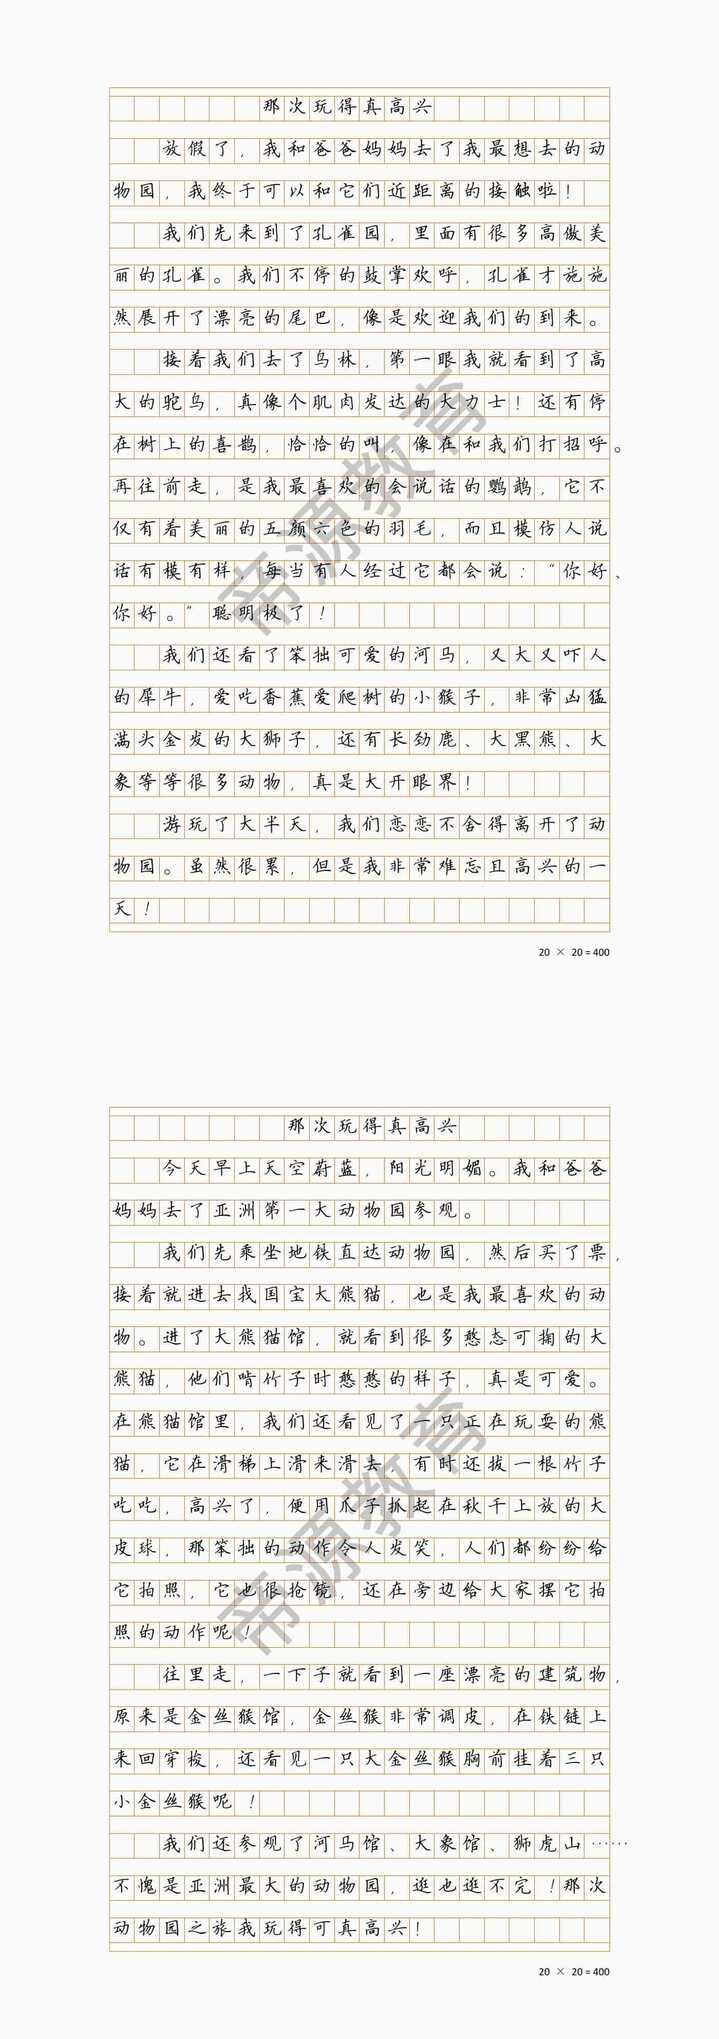 那次玩得真高兴
放假了，我和爸爸妈妈去了我最想去的动
物园，我终于可以和它们近距离的接触啦！
我们先来到了孔雀园，里面有很多高傲美
丽的孔雀。我们不停的鼓掌欢呼，孔雀才施施
然展开了漂亮的尾巴，像是欢迎我们的到来。
接着我们去了鸟林，第一眼我就看到了高
大的鸵鸟，真像个肌肉发达的大力士！还有停
在树上的喜鹊，恰恰的叫，像在和我们打招呼。
再往前走，是我最喜欢的会说话的鹦鹉，它不
仅有着美丽的五颜六色的羽毛，而且模仿人说
话有模有样，每当有人经过它都会说：“你好、
你好。”聪明极了！
我们还看了笨拙可爱的河马，又大又吓人
的犀牛，爱吃香蕉爱爬树的小猴子，非常凶猛
满头金发的大狮子，还有长劲鹿、大黑熊、大
象等等很多动物，真是大开眼界！
游玩了大半天，我们恋恋不舍得离开了动
物园。虽然很累，但是我非常难忘且高兴的一
天！
20 × 20 = 400
那次玩得真高兴
今天早上天空蔚蓝，阳光明媚。我和爸爸
妈妈去了亚洲第一大动物园参观。
我们先乘坐地铁直达动物园，然后买了票，
接着就进去找国宝大熊猫，也是我最喜欢的动
物。进了大熊猫馆，就看到很多憨态可掬的大
熊猫，他们啃竹子时憨憨的样子，真是可爱。
在熊猫馆里，我们还看见了一只正在玩耍的熊
猫，它在滑梯上滑来滑去，有时还拔一根竹子
吃吃，高兴了，便用爪子抓起在秋千上放的大
皮球，那笨拙的动作令人发笑，人们都纷纷给
它拍照，它也很抢镜，还在旁边给大家摆它拍
照的动作呢！
往里走，一下子就看到一座漂亮的建筑物，
原来是金丝猴馆，金丝猴非常调皮，在铁链上
来回穿梭，还看见一只大金丝猴胸前挂着三只
小金丝猴呢！
我们还参观了河马馆、大象馆、狮虎山……
不愧是亚洲最大的动物园，逛也逛不完！那次
动物园之旅我玩得可真高兴！
20 × 20 = 400
帝源教育
帝源教育